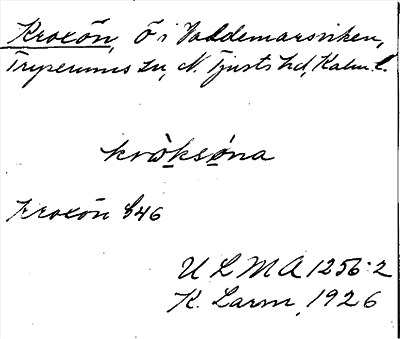 Kroxön, Ö i Valdemarsviken,
Tryserums sn, N. Tjusts hd, Kalm. l.
kròksóna
Kroxön 846
ULMA 1256:2
K. Larm, 1926